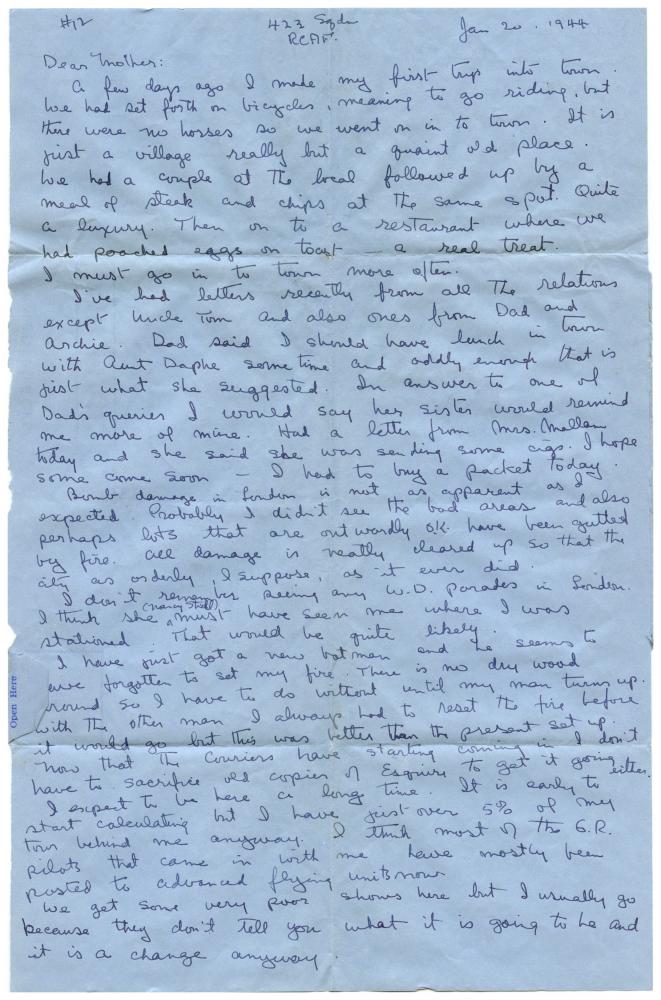 #12 423 Sqdn Jan 20. 1944
RCAF.
Dear Mother:
A few days ago I made my first trip into town.
We had set forth on bicycles, meaning to go riding, but
there were no horses so we went on in to town. It is
just a village really but a quaint old place.
We had a couple at the local followed up by a
meal of steak and chips at the same spot. Quite
a luxury. Then on to a restaurant where we
had poached eggs on toast — a real treat.
I must go in to town more often.
I've had letters recently from all the relations
except Uncle Tom and also ones from Dad and
Archie. Dad said I should have lunch in town
with Aunt Daphe some time and oddly enough that is
just what she suggested. In answer to one of
Dad's queries I would say her sister would remind
me more of mine. Had a letter from Mrs. Mallam
today and she said she was sending some cigs. I hope
some come soon — I had to buy a packet today.
Bomb damage in London is not as apparent as I
expected. Probably I didn't see the bad areas and also
perhaps lots that are outwardly O.K. have been gutted
by fire. All damage is neatly cleared up so that the
city as orderly, I suppose, as it ever did.
I don't remember seeing any W.D. parades in London.
I think she (Nancy) must have seen me where I was
stationed. That would be quite likely.
I have just got a new batman and he seems to
have forgotten to set my fire. There is no dry wood
around so I have to do without until my man turns up.
with the other man I always had to reset the fire before
it would go but this was better than the present set up.
Now that the Couriers have starting coming in I don't
have to sacrifice old copies of Esquire to get it going either.
I expect to be here a long time. It is early to
start calculating but I have just over 5% of my
tour behind me anyway. I think most of the G.R.
pilots that came in with me have mostly been
posted to advanced flying units now
We get some very poor shows here but I usually go
because they don't tell you what it is going to be and
it is a change anyway.
Open Here